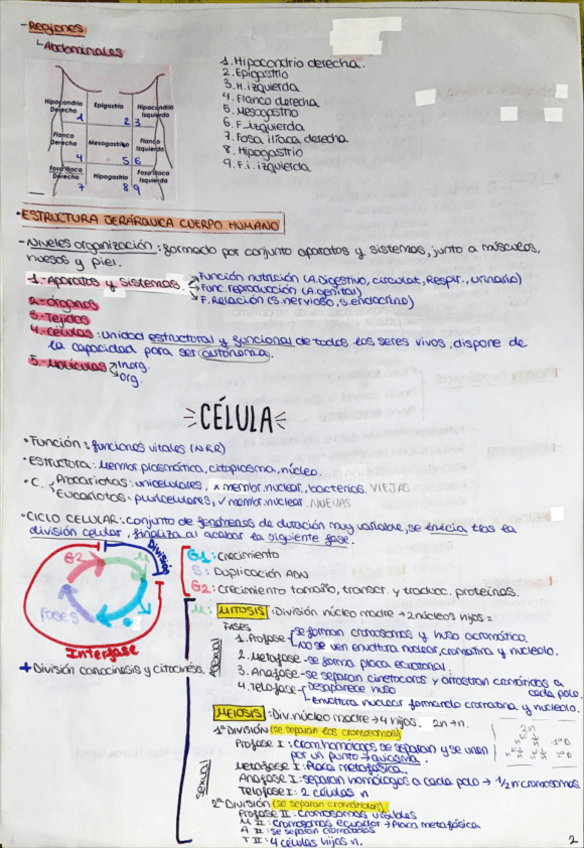 - Regiones
Abdominales
Hipocondrio Derecho 1
Epigastrio 2
Hipocondrio Izquierdo 3
Flanco Derecho 4
Mesogastrio 5
Flanco Izquierdo 6
Fosa Iliaca Derecha 7
Hipogastrio 8
Fosa Iliaca Izquierda 9
1. Hipocondrio derecha.
2. Epigastrio
3. H. izquierda
4. Flanco derecha
5. Mesogastrio
6. F. izquierda
7. Fosa ilíaca derecha
8. Hipogastrio
9. F.i. izquierda
· ESTRUCTURA JERÁRQUICA CUERPO HUMANO
- Niveles organización: formado por conjunto aparatos y sistemas, junto a músculos,
huesos y piel.
1. Aparatos y sistemas. → Función nutrición (A. Digestivo, circulat, Respir., urinario)
→ Func. reproducción (A. genital)
→ F. Relación (S. nervioso, s. endocrino)
2. Órganos
3. Tejidos
4. Células: unidad estructural y funcional de todos los seres vivos, dispone de
la capacidad para ser autónoma.
5. Moléculas → Inorg.
org.
CÉLULA
· Función: funciones vitales (N.R.R)
· Estructura: Membr plasmática, citoplasma, núcleo.
· C. Procariotas: unicelulares, x membr. nuclear, bacterias. VIEJAS
Eucariotas: pluricelulares, ✓ membr. nuclear. NUEVAS
· CICLO CELULAR: conjunto de fenómenos de duración muy variable, se inicia tras la
división celular, finaliza al acabar la siguiente fase.
División
G2
M
Fase S
G1
Interfase
+ División cariocinesis y citocinesis.
G1: Crecimiento
S: Duplicación ADN
G2: Crecimiento tamaño, transcr. y traducc. proteínas.
M: MITOSIS: División núcleo madre → 2 núcleos hijos =
asexual
Fases
1. Profase - se forman cromosomas y huso acromático.
No se ven envoltura nuclear, cromatina y nucleolo.
2. Metafase - se forma placa ecuatorial.
3. Anafase - se separan cinetocoros y arrastran cromátidas a
cada polo.
4. Telofase - Desaparece huso
- Envoltura nuclear formando cromatina y nucleolo.
MEIOSIS: Div. núcleo madre → 4 hijos. 2n → n.
sexual
1ª División (se separan los cromosomas)
Profase I: Crom. homólogos se separan y se unen
por un punto → quiasma.
Metafase I: Placa metafásica.
Anafase I: separan homólogos a cada polo → 1/2 n cromosomas
Telofase I: 2 células n
2ª División (se separan cromátidas)
Profase II: Cromosomas visibles
M II: Cromosomas ecuador → Placa metafásica
A II: se separan cromátidas
T II: 4 células hijas n.
2n
2